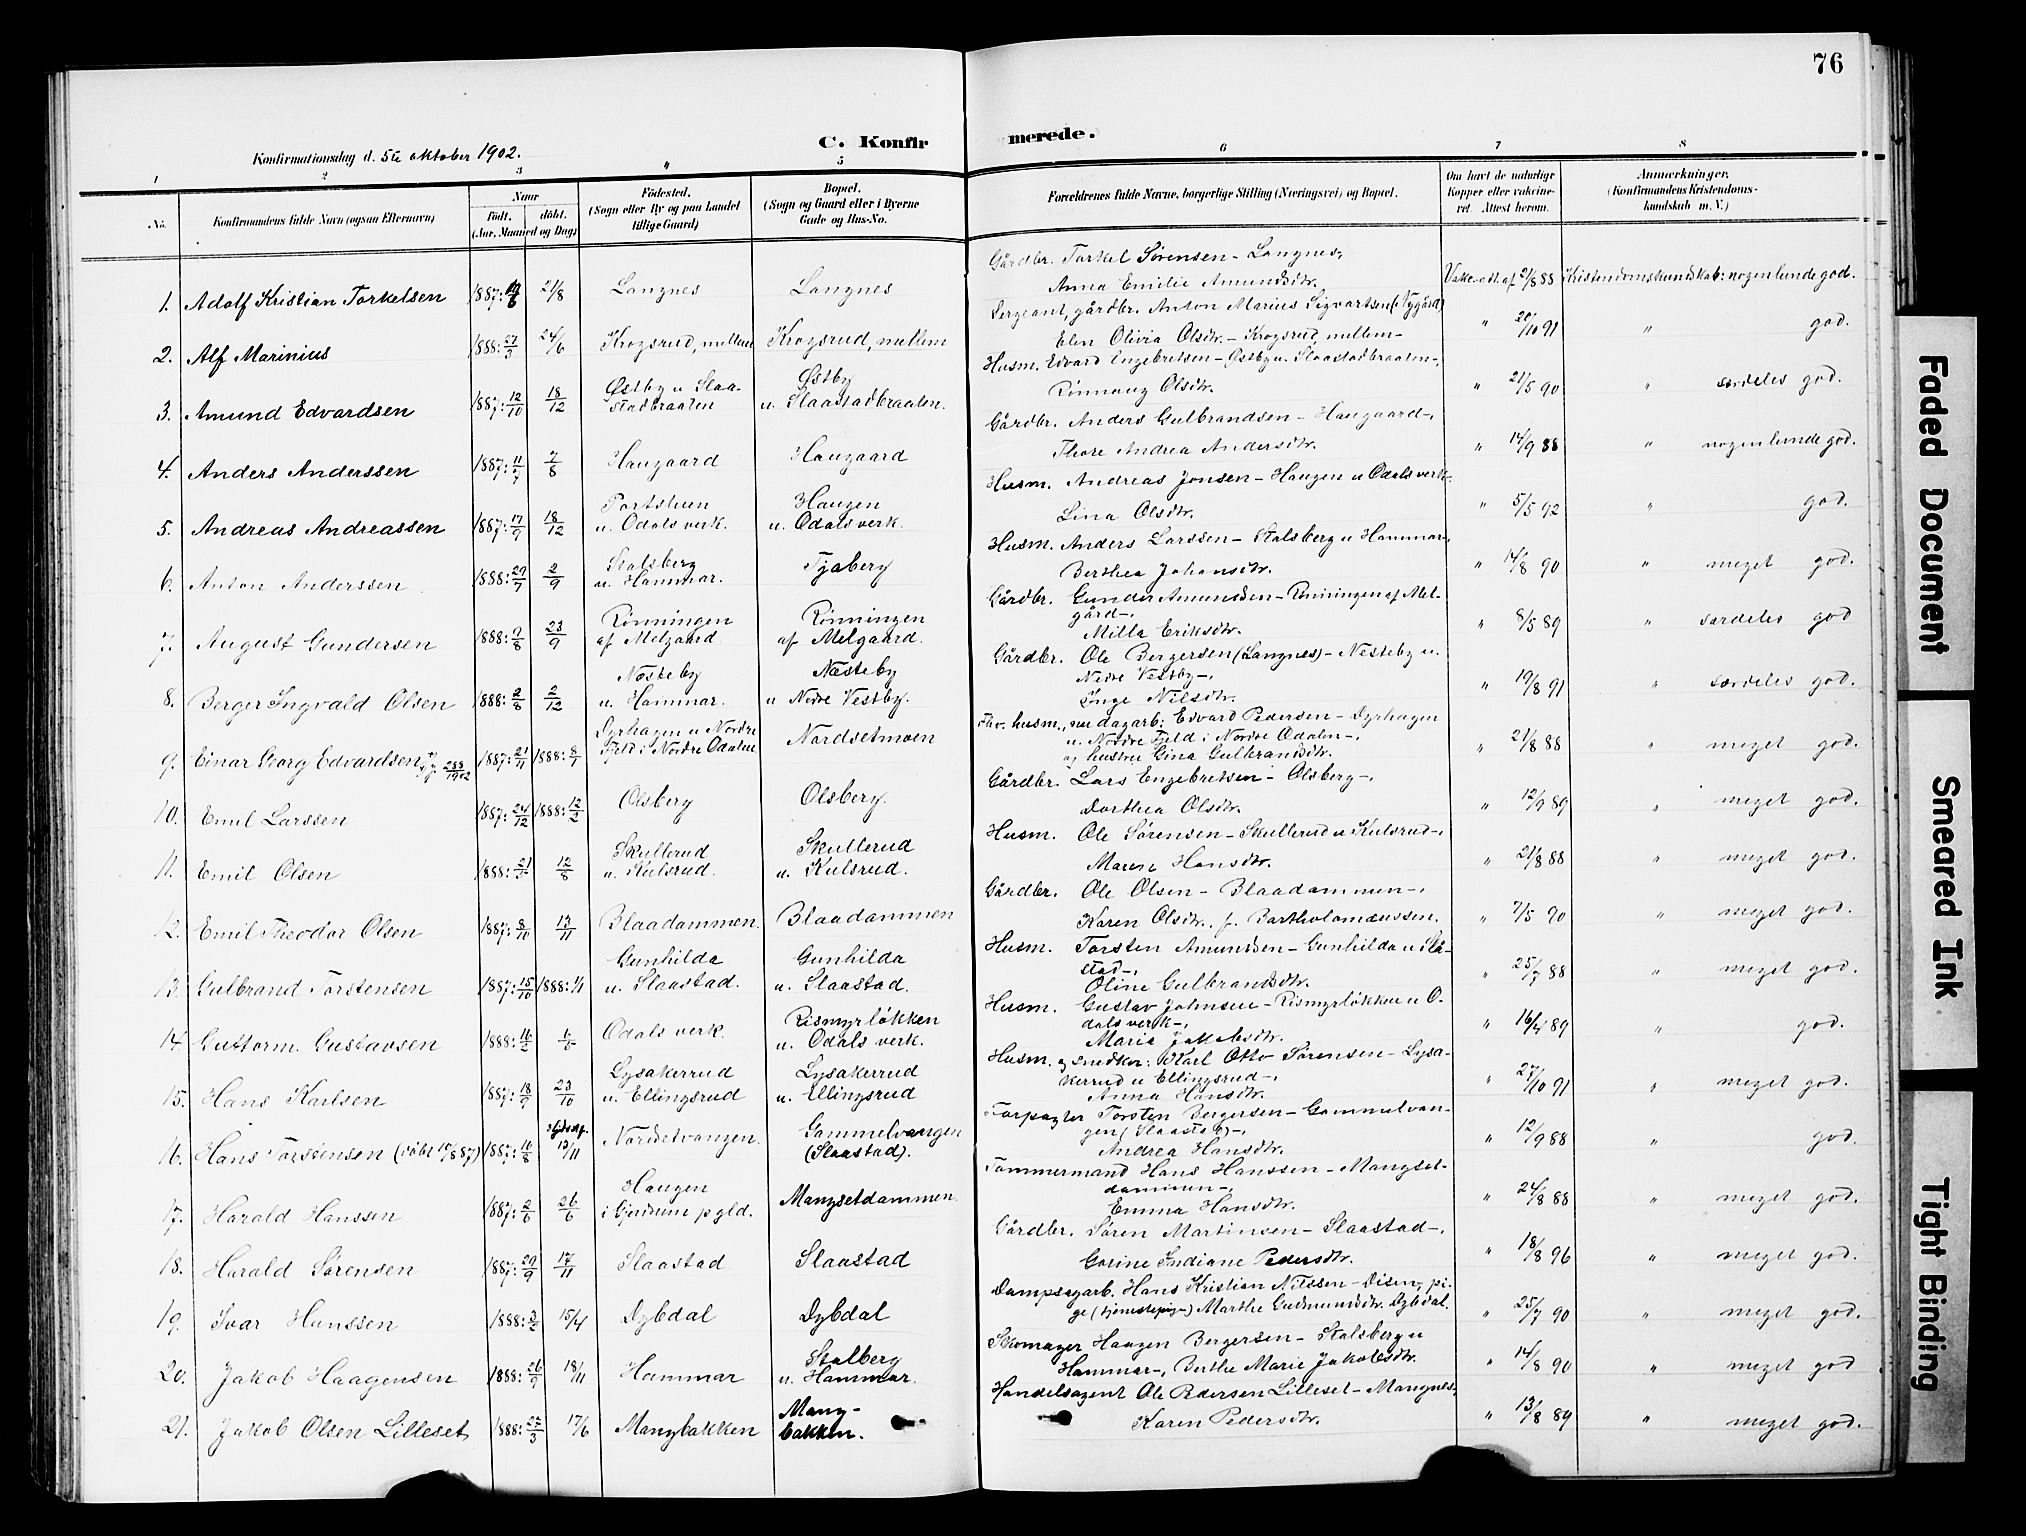 76
C. Konfirmerede.
Konfirmationsdag d. 5te oktober 1902.
1 2 3 " 5 6 7 8
No.
Konfirmandens fulde Navn (ogsaa Efternavn)
Naar
födt, döbt,
(Aar, Maaned og Dag)
Födested.
(Sogn eller By og paa Landet
tillige Gaard)
Bopæl.
(Sogn og Gaard eller i Byerne
Gade og Hus-No.
Forældrenes fulde Navne, borgerlige Stilling (Næringsvei) og Bopæl.
Om havt de naturlige
Kopper eller vaccine-
ret. Attest herom.
Anmærkninger.
(Konfirmandens Kristendoms-
kundskab m. V.)
Gårdbr. Torkel Sørensen - Langnes,
1. Adolf Kristian Torkelsen 1887: 21/8 Langnes Langnes Anna Emilie Amundsdtr. Vakc.att. af 21/8 88 Kristendomskundskab: nogenlunde god.
Sergeant, gårdbr. Anton Marius Sigvartsen (Nygård)
2. Alf Marinius 1888: 27/3 24/6 Krogsrud, mellem Krogsrud, mellem Elen Olivia Olsdtr. - Krogsrud mellem - " 20/10 91 " god.
Husm. Edvard Engebretsen - Østby u. Slaastadbraaten -,
3. Amund Edvardsen 1887: 12/10 18/12 Østby u Slaa-stadbraaten Østby u. Slaastadbraaten. Rønnaug Olsdtr. " 21/5 90 " særdeles god.
Gårdbr. Anders Gulbrandsen - Haugaard -,
4. Anders Anderssen 1887: 11/7 7/8 Haugaard Haugaard Thore Andrea Andersdtr. " 14/9 88 " nogenlunde god.
Husm. Andreas Jonsen - Haugen u Odals verk -,
5. Andreas Andreassen 1887: 17/9 18/12 Portstuen u. Odals verk. Haugen u. Odals verk. Lina Olsdtr. " 5/5 92 " god.
Husm. Anders Larssen - Stalsberg u Hammar -,
6. Anton Anderssen 1888: 29/7 2/9 Stalsberg u. Hammar. Tjaberg Berthea Johansdtr. " 14/8 90 " meget god.
Gårdbr. Gunder Amundsen - Rønningen af Mel-
gård -,
7. August Gundersen 1888: 9/8 23/9 Rønningen af Melgaard Rønningen af Melgaard. Milla Eriksdtr. " 8/5 89 " særdeles god
Gårdbr. Ole Bergersen (Langnes) - Nesteby u.
Nedre Vestby -,
8. Berger Ingvald Olsen 1888: 2/8 2/12 Næsteby u. Hammar. Næsteby u Nedre Vestby. Inge Nilsdtr. " 19/8 91 " særdeles god.
Fhv. husm., nu dagarb: Edvard Pedersen - Dyrhagen
u. Nordre Fjeld i Nordre Odalen -,
9. Einar Georg Edvardsen 288/1902 1887: 21/11 1888: 8/1 Dyrhagen u Nordre Fjeld i Nordre Odalen Nordsetmoen og hustru Gina Gulbrandsdtr. " 21/8 88 " meget god.
Gårdbr. Lars Engebretsen - Olsberg -,
10. Emil Larssen 1887: 24/12 1888: 12/2 Olsberg Olsberg. Dorthea Olsdtr. " 12/9 89 " meget god.
Husm. Ole Sørensen - Skullerud u Kulsrud -,
11. Emil Olsen 1888: 12/8 Skullerud u. Kulsrud. Skullerud u. Kulsrud. Maren Hansdtr. " 21/8 88 " meget god.
Gårdbr. Ole Olsen - Blaadammen -,
12. Emil Theodor Olsen 1887: 8/10 13/11 Blaadammen. Blaadammen Karen Olsdtr., f. Bartholomæussen. " 7/5 90 " meget god.
Husm. Torsten Amundsen - Gunhilda u Slå-
stad -,
13. Gulbrand Torstensen 1887: 15/10 1888: 1/1 Gunhilda u. Slaastad. Gunhilda u. Slaastad. Oline Gulbrandsdtr. " 25/7 88 " meget god.
Husm. Gustav Johnsen - Rismyrløkken u O-
dals verk -,
14. Guttorm Gustavsen 1888: 16/2 Odals verk. Rismyrløkken u. Odals verk. Marie Jakobsdtr. " 16/4 89 " god.
Husm. og snedker: Karl Otto Sørensen - Lysa-
kerrud u Ellingsrud -,
15. Hans Karlsen 1887: 18/9 23/10 Lysakerrud u. Ellingsrud Lysakerrud u. Ellingsrud Anna Hansdtr. " 27/10 91 " meget god.
Forpagter Torsten Bergersen - Gammelvan-
gen (Slaastad) -,
16. Hans Torstensen (døbt 10/8 87) 1887: 10/8 13/11 Nordsetvangen. Gammelvangen (Slaastad). Andrea Hansdtr. " 12/9 88 " god.
Tømmermand Hans Hanssen - Mangset-
dammen -,
17. Harald Hanssen 1887: 2/6 26/6 Haugen i Gjerdrum pgld. Mangsetdammen. Emma Hansdtr. " 24/8 88 " meget god.
Gårdbr. Søren Martinsen - Slaastad -,
18. Harald Sørensen 1887: 29/9 17/11 Slaastad Slaastad Gorine Indiane Pedersdtr. " 18/8 96 " meget god.
Dampsagarb. Hans Kristian Nilssen - Disen -, pi-
19. Ivar Hanssen 1888: 3/2 15/4 Dybdal Dybdal ge (tjenestepige) Marthe Gudmundsdtr. Dybdal. " 25/7 90 " meget god.
Skomager Haagen Bergersen - Stalsberg u
20. Jakob Haagensen 1888: 26/9 18/11 Hammar Stalberg u. Hammar. Hammar -, Berthe Marie Jakobsdtr. " 14/8 90 " meget god
Handelsagent Ole Pedersen Lilleset - Mangnes,
21. Jakob Olsen Lilleset 1888: 22/3 17/6 Mangbakken Mang-bakken. Karen Pedersdtr. " 13/8 89 " meget god.
Faded Document
Smeared Ink
Tight Binding